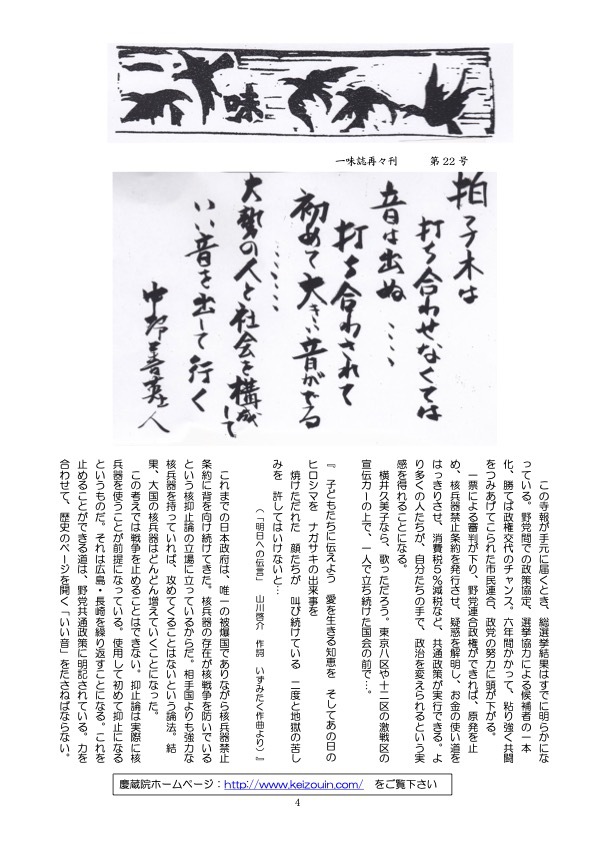 一味
一味誌再々刊　　第22号
拍子木は
打ち合わせなくては
音は出ぬ....
打ち合わされて
初めて大きい音がでる
......
大勢の人と社会を構成して
いい音を出して行く
中野善英人
この寺報が手元に届くとき、総選挙結果はすでに明らかにな
っている。野党間での政策協定、選挙協力による候補者の一本
化、勝てば政権交代のチャンス。六年間かかって、粘り強く共闘
をつみあげてこられた市民連合、政党の努力に頭が下がる。
一票による審判が下り、野党連合政権ができれば、原発を止
め、核兵器禁止条約を発行させ、疑惑を解明し、お金の使い道を
はっきりさせ、消費税５％減税など、共通政策が実行できる。よ
り多くの人たちが、自分たちの手で、政治を変えられるという実
感を得れることになる。
横井久美子なら、歌っただろう。東京八区や十二区の激戦区の
宣伝カーの上で、一人で立ち続けた国会の前で…。
『 子どもたちに伝えよう　愛を生きる知恵を　そしてあの日の
ヒロシマを　ナガサキの出来事を
焼けただれた　顔たちが　叫び続けている　二度と地獄の苦し
みを　許してはいけないと…
（「明日への伝言」　山川啓介　作詞　いずみたく作曲より）』
これまでの日本政府は、唯一の被爆国でありながら核兵器禁止
条約に背を向け続けてきた。核兵器の存在が核戦争を防いでいる
という核抑止論の立場に立っているからだ。相手国よりも強力な
核兵器を持っていれば、攻めてくることはないという論法。結
果、大国の核兵器はどんどん増えていくことになった。
この考えでは戦争を止めることはできない。抑止論は実際に核
兵器を使うことが前提になっている。使用して初めて抑止になる
というものだ。それは広島・長崎を繰り返すことになる。これを
止めることができる道は、野党共通政策に明記されている。力を
合わせて、歴史のページを開く「いい音」をださねばならない。
慶蔵院ホームページ：http://www.keizouin.com/　をご覧下さい
4